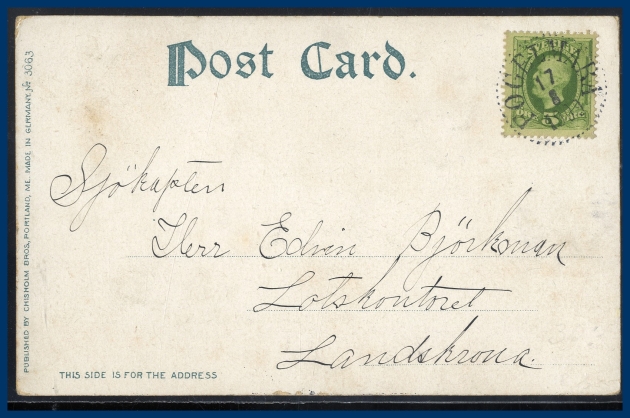 Post Card.
17
8
Sjökapten
Herr Edvin Björkman
Lotskontoret
Landskrona.
THIS SIDE IS FOR THE ADDRESS
PUBLISHED BY CHISHOLM BROS., PORTLAND, ME. MADE IN GERMANY. No 3063